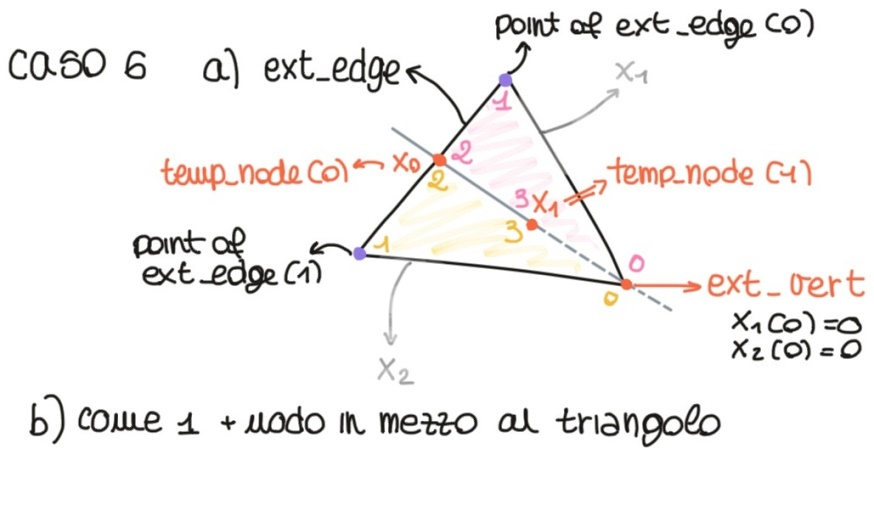 point of ext_edge (0)
caso 6 a) ext_edge
X1
1
temp_node (0) X0 2
2
3 X1 temp_node (1)
3
point of
ext_edge (1)
1
0
0
ext_vert
X1 (0) = 0
X2 (0) = 0
X2
b) come 1 + nodo in mezzo al triangolo